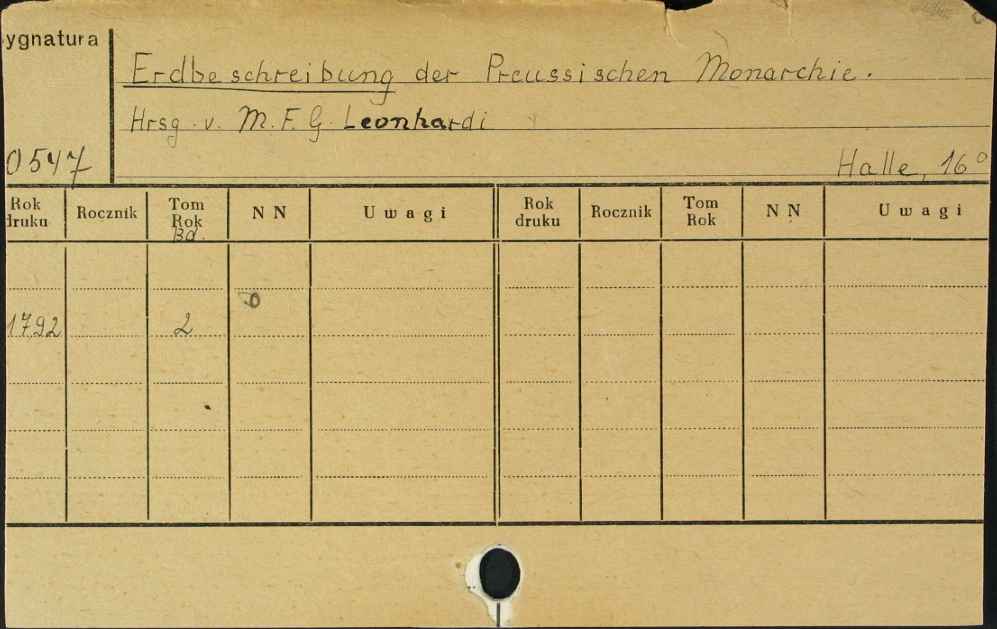 ygnatura
Erdbeschreibung der Preussischen Monarchie.
Hrsg. v. M. F. G. Leonhardi
0547
Halle, 16°
Rok druku Rocznik Tom Rok Bd. NN Uwagi Rok druku Rocznik Tom Rok NN Uwagi
1792 2